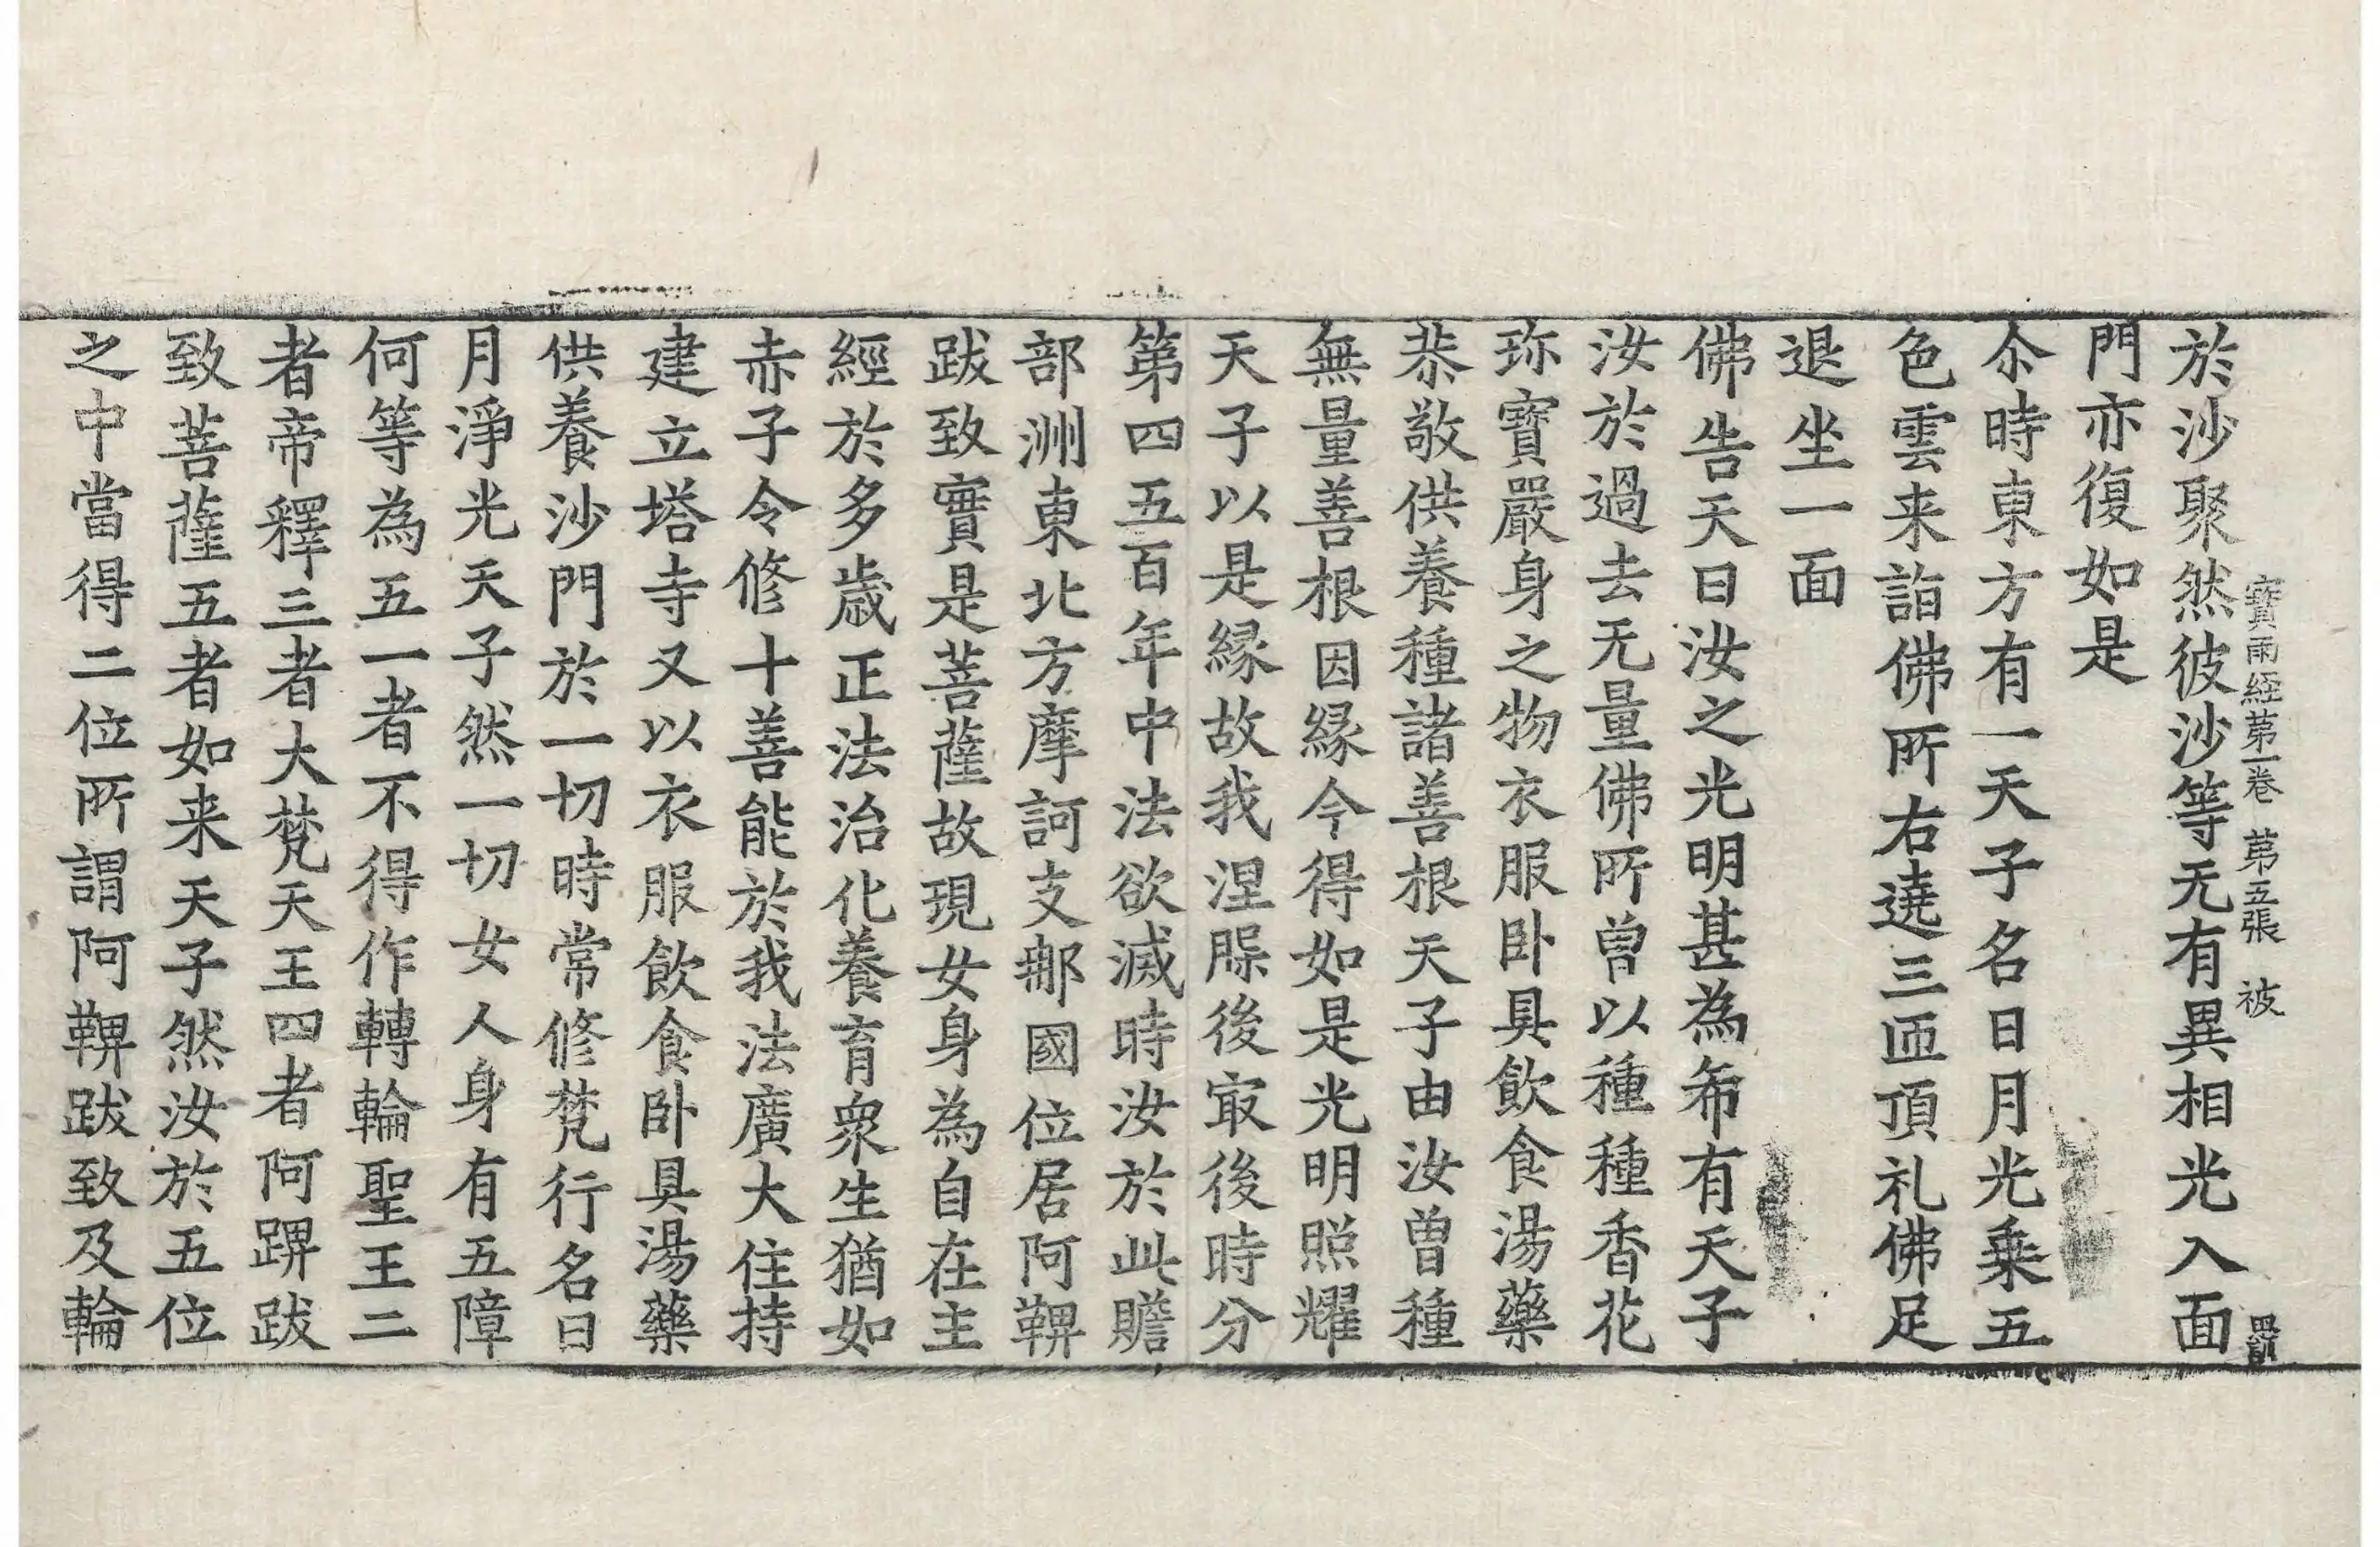 寶雨經第一卷 第五張 被
於沙聚然彼沙等无有異相光入面
門亦復如是
尒時東方有一天子名日月光乗五
色雲来詣佛所右遶三匝頂礼佛足
退坐一面
佛告天曰汝之光明甚為希有天子
汝於過去无量佛所曾以種種香花
珎寶嚴身之物衣服卧具飲食湯藥
恭敬供養種諸善根天子由汝曾種
無量善根因緣今得如是光明照耀
天子以是緣故我涅膝後冣後時分
第四五百年中法欲滅時汝於此贍
部洲東北方摩訶支那國位居阿鞞
跋致實是菩薩故現女身為自在主
經於多歲正法治化養育衆生猶如
赤子令修十善能於我法廣大住持
建立塔寺又以衣服飲食卧具湯藥
供養沙門於一切時常修梵行名曰
月淨光天子然一切女人身有五障
何等為五一者不得作轉輪聖王二
者帝釋三者大梵天王四者阿鞞跋
致菩薩五者如来天子然汝於五位
之中當得二位所謂阿鞞跋致及輪